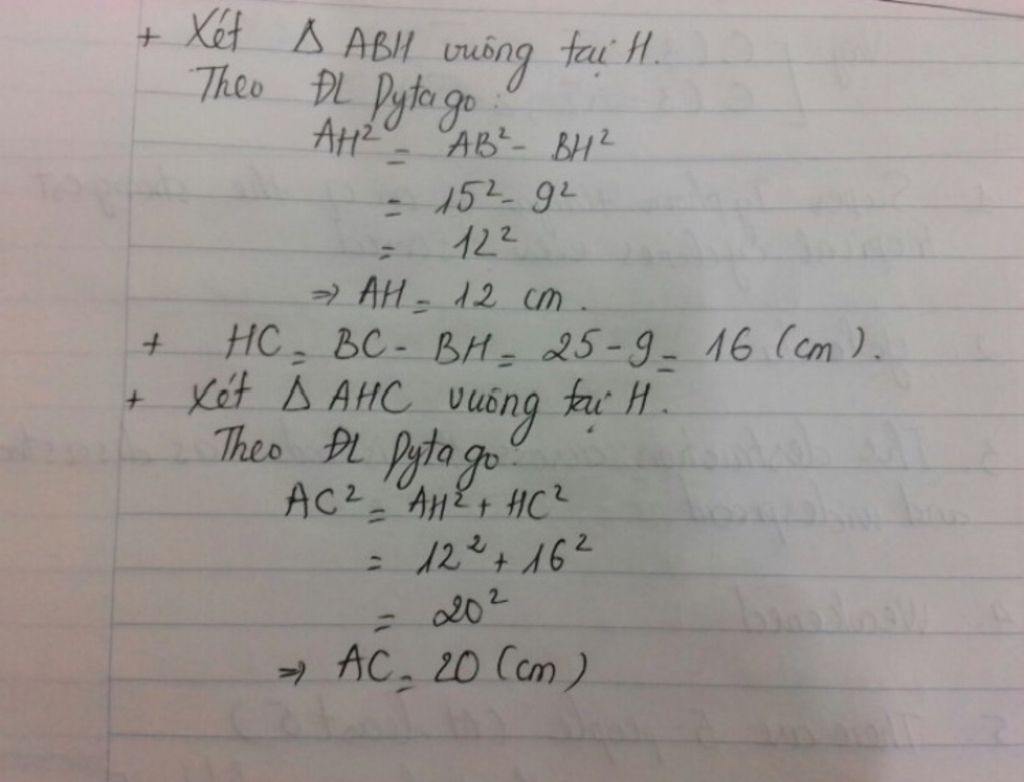 + Xét Δ ABH vuông tại H.
Theo ĐL Pytago:
AH² = AB² - BH²
= 15² - 9²
= 12²
⇒ AH = 12 cm.
+ HC = BC - BH = 25 - 9 = 16 (cm).
+ Xét Δ AHC vuông tại H.
Theo ĐL Pytago:
AC² = AH² + HC²
= 12² + 16²
= 20²
⇒ AC = 20 (cm)